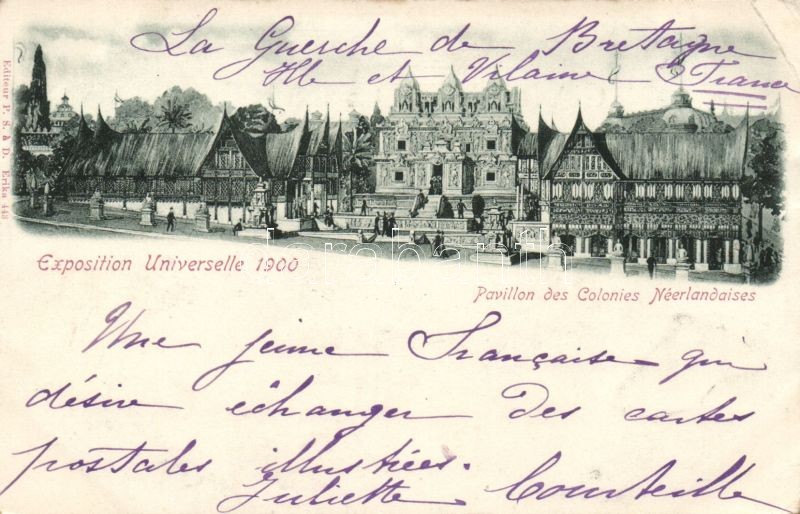 La Guerche de Bretagne
Ille et Vilaine France
Editeur P. S. à D. Erika 448
Exposition Universelle 1900
Pavillon des Colonies Néerlandaises
Une jeune Française qui
désire échanger des cartes
postales illustrées.
Juliette Courteille